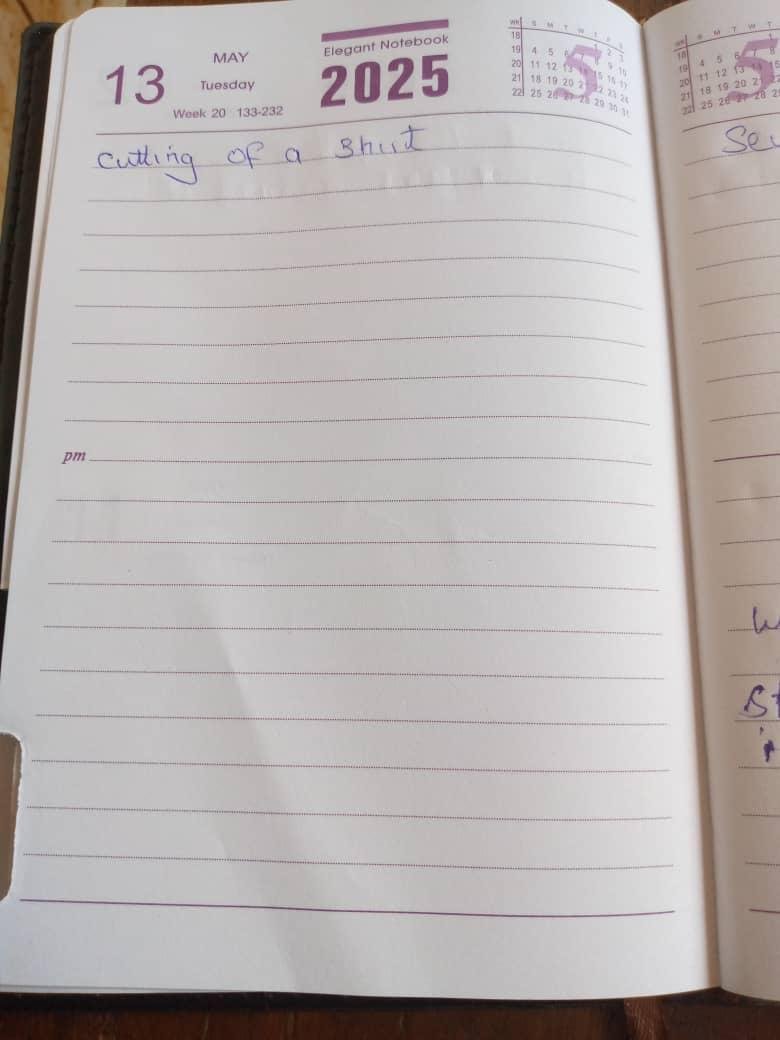 13
MAY
Tuesday
Week 20 133-232
Elegant Notebook
2025
WK S M T W T F S
18 1 2 3
19 4 5 6 9 10
20 11 12 13 14 15 16 17
21 18 19 20 21 22 23 24
22 25 26 27 28 29 30 31
5
cutting of a shirt
pm
WK S M T W T
18
19 4 5 6
20 11 12 13 14 15
21 18 19 20 21 22
22 25 26 27 28 29
5